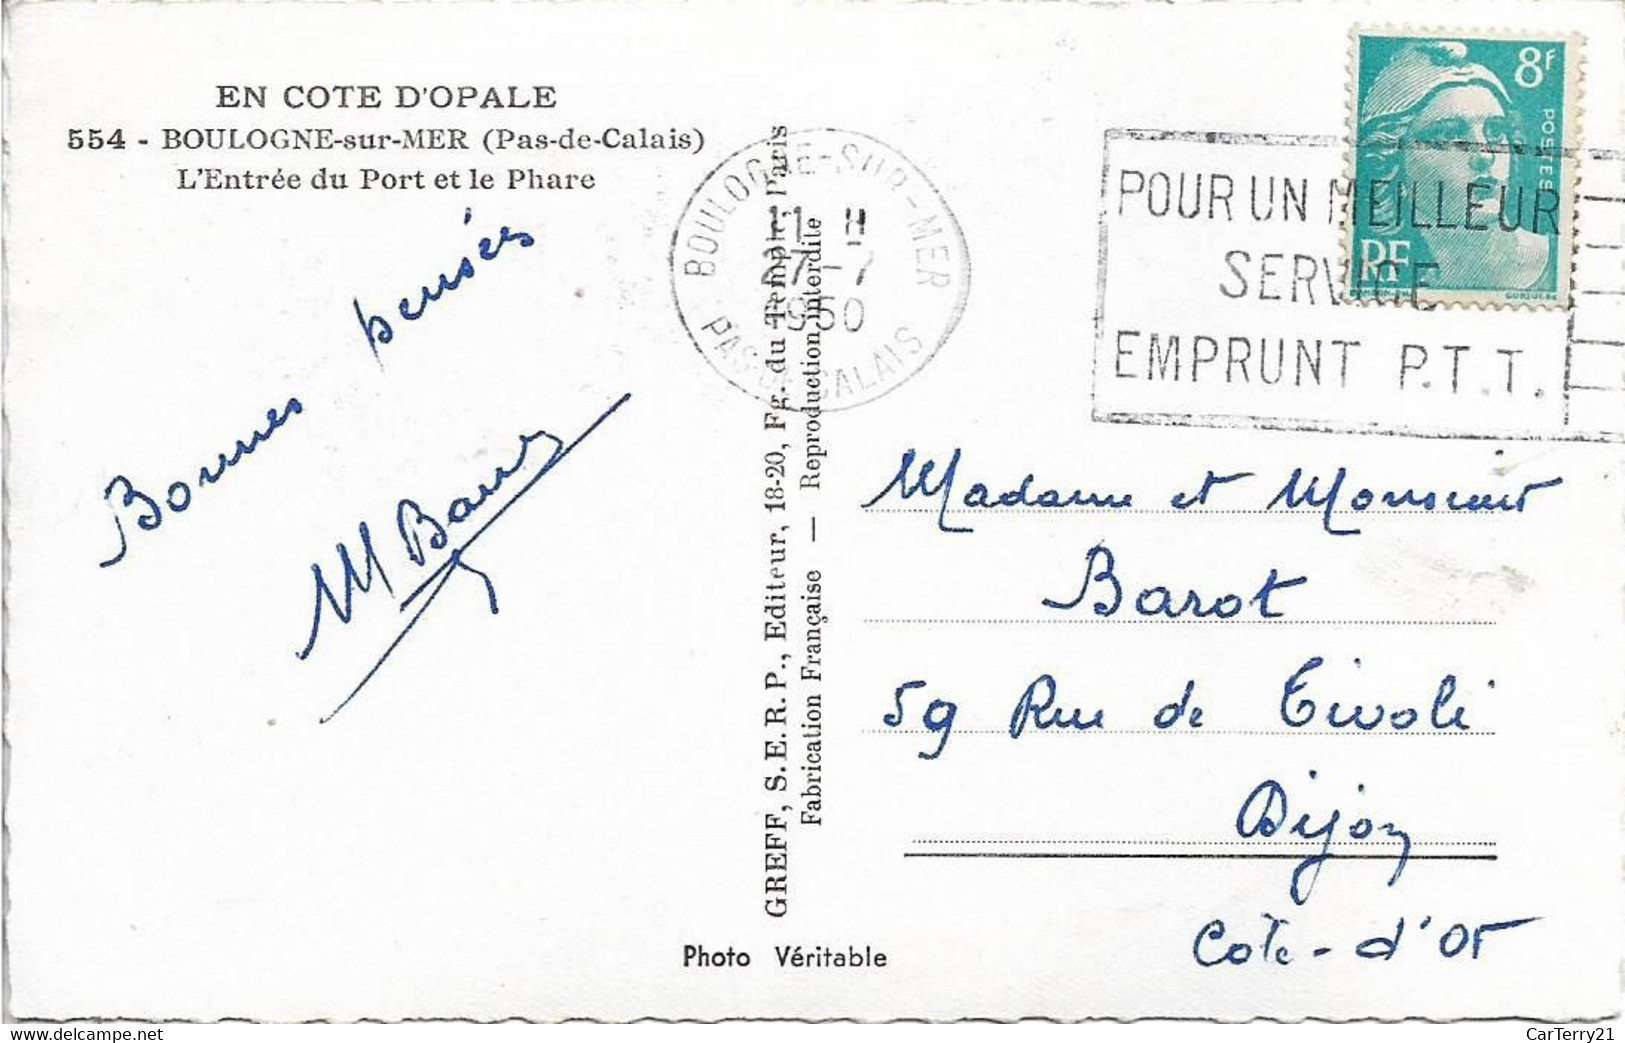 EN COTE D'OPALE
554 - BOULOGNE-sur-MER (Pas-de-Calais)
L'Entrée du Port et le Phare
Bonnes pensées
M
BOULOGNE-SUR-MER
11 H
27-7
1950
PAS-DE-CALAIS
POUR UN MEILLEUR
SERVICE
EMPRUNT P.T.T.
8F
POSTES
RF
GREFF, S.E.R.P., Editeur, 18-20, Fg. du Temple, Paris
Fabrication Française — Reproduction interdite
Madame et Monsieur
Barot
59 Rue de Tivoli
Dijon
Cote-d'Or
Photo Véritable
delcampe.net
CarTerry21